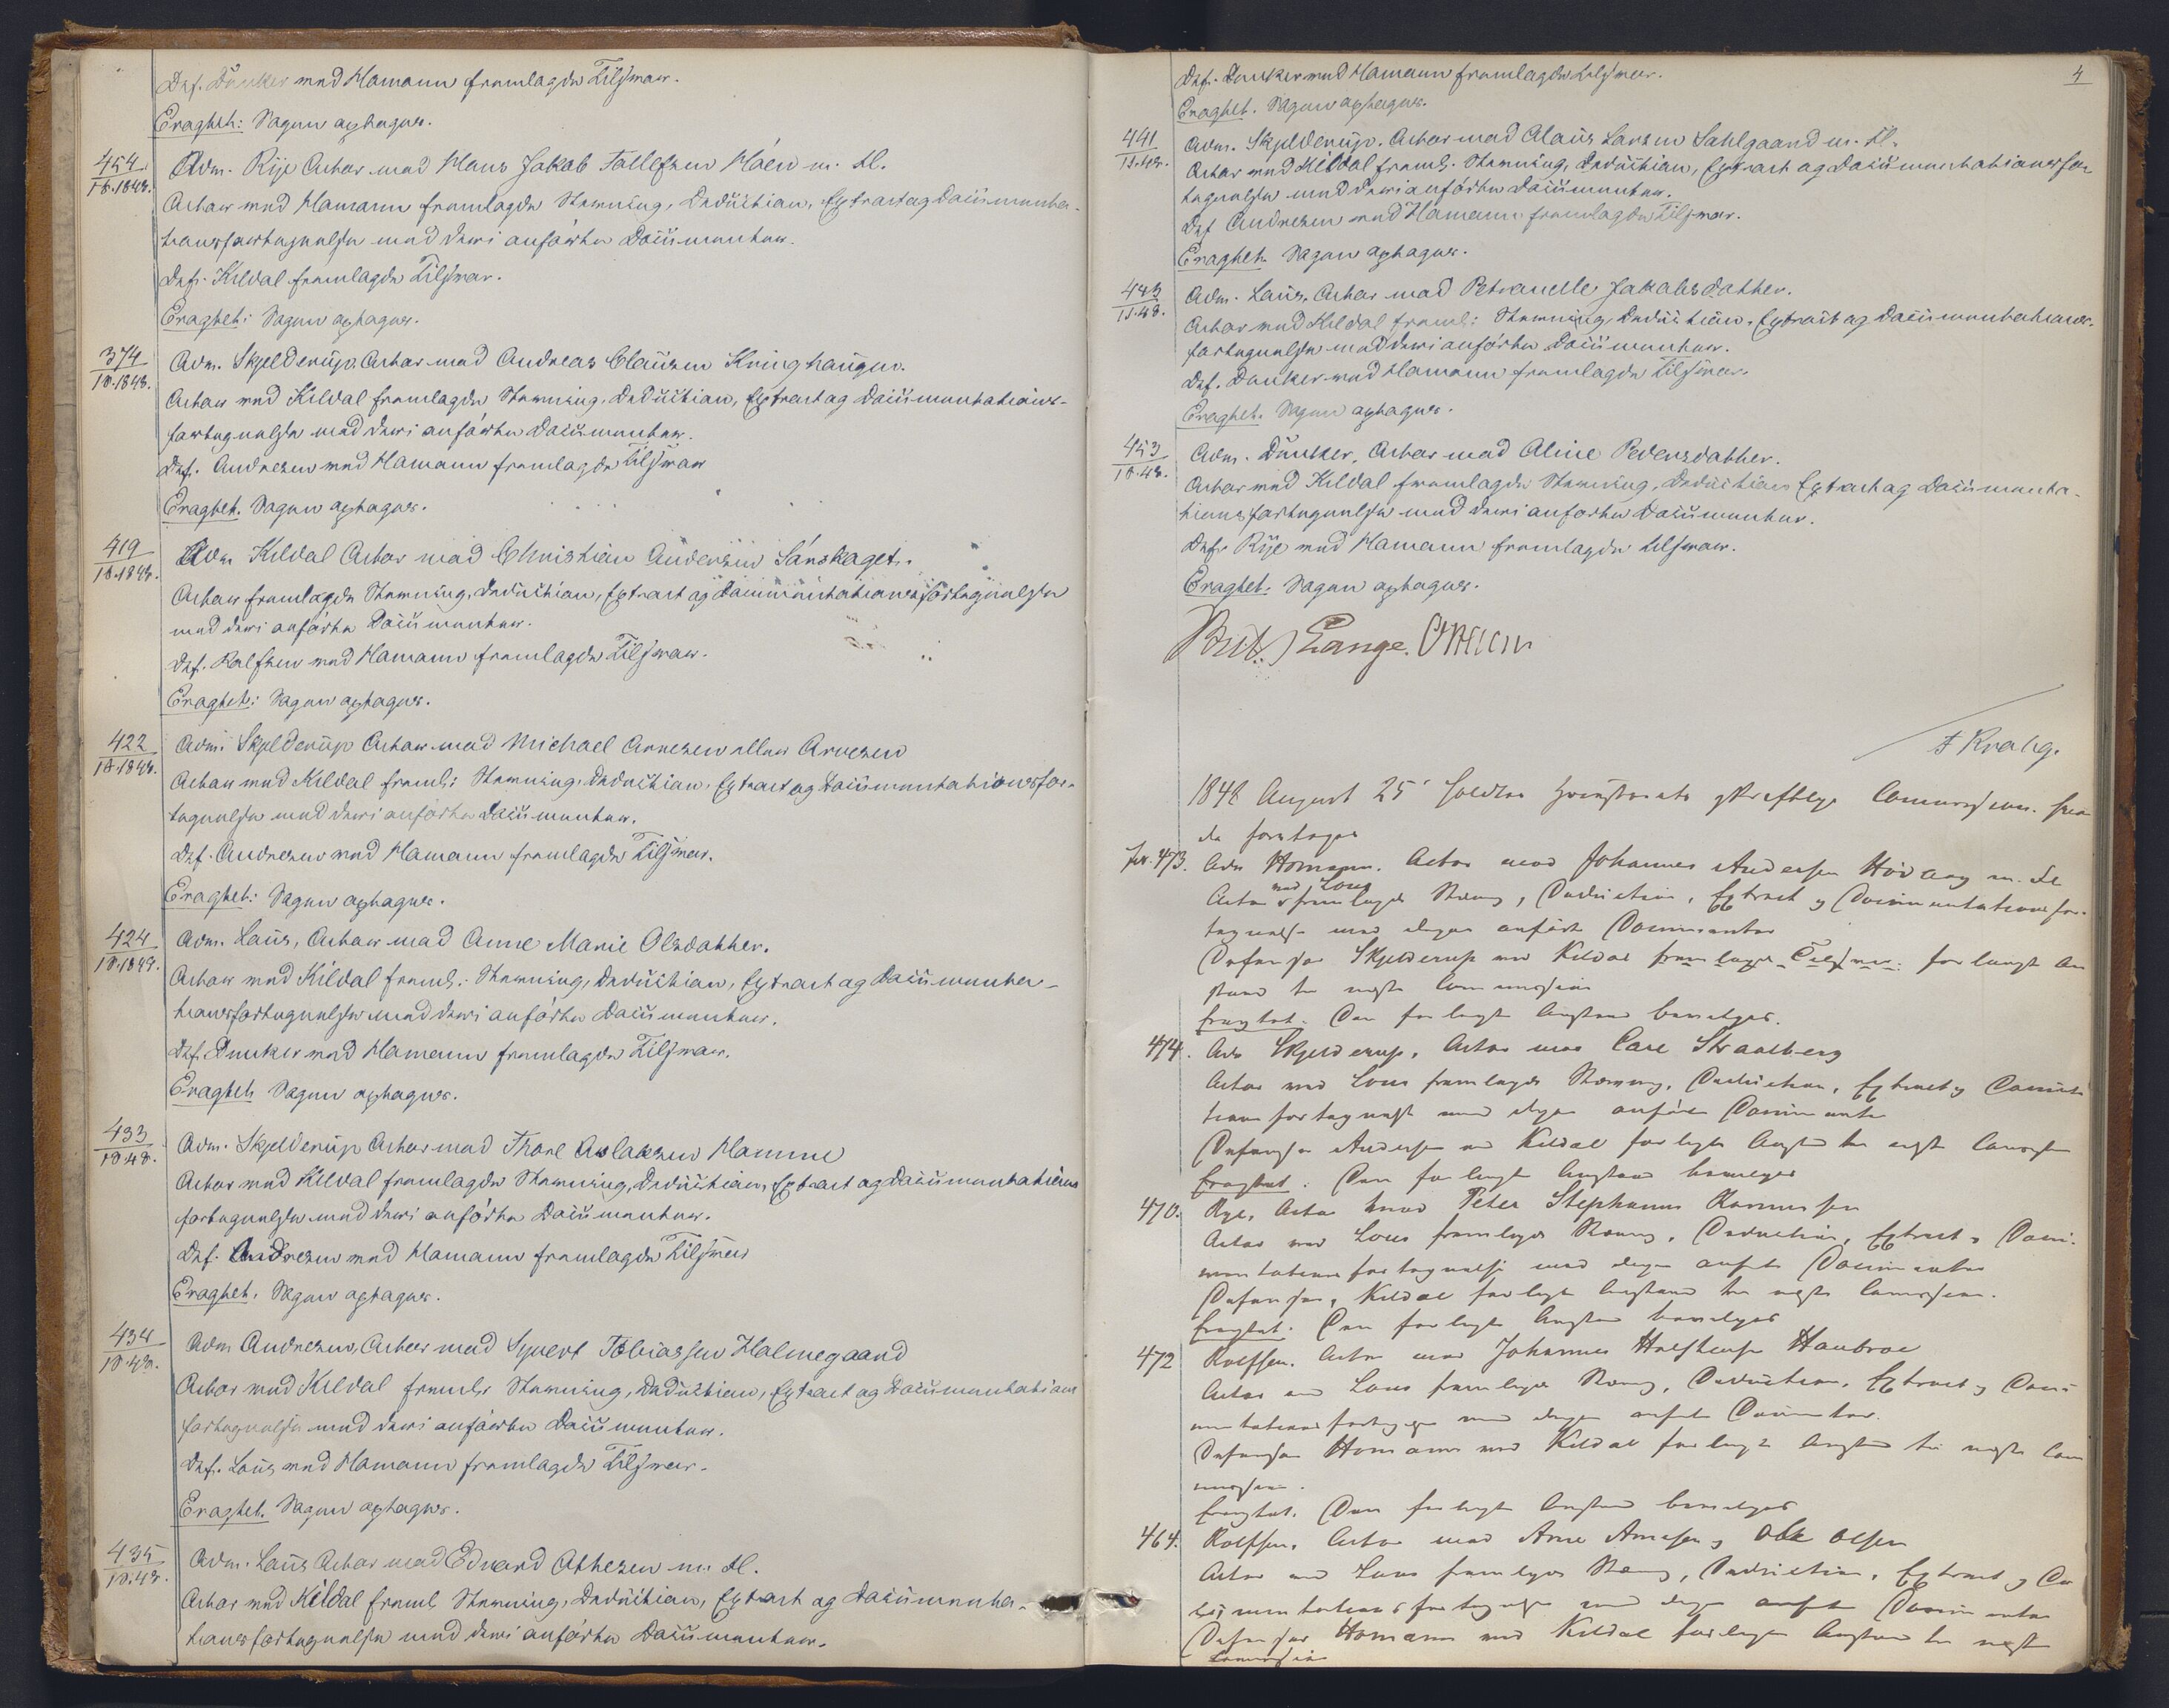 Def. Dunker med Hamann fremlagde Tilsvar.
Eragtet: Sagen optages.
454/18.1848. Adv. Rije Actor mod Hans Jakob Tollefsen Móen m. Fl.
Actor med Hamann fremlagde Stævning, Deduction, Extract og Documenta-
tionsfortegnelse med deri anførte Documenter.
Def. Kildal fremlagde Tilsvar.
Eragtet: Sagen optages.
374/18.1848. Adv. Skjelderup. Actor mod Andreas Clausen Kringhaugen.
Actor med Kildal fremlagde Stævning, Deduction, Extract og Documentations-
fortegnelse med deri anførte Documenter.
Def. Andresen med Hamann fremlagde Tilsvar
Eragtet. Sagen optages.
419/18.1848. Adv. Kildal Actor mod Christian Andersen Sánskaget.
Actor fremlagde Stævning, Deduction, Extract og Documentationsfortegnelse
med deri anførte Documenter.
Def. Rolfsen med Hamann fremlagde Tilsvar.
Eragtet: Sagen optages.
422/18.1848. Adv. Skjelderup Actor mod Michael Arnesen eller Arvesen
Actor med Kildal freml: Stævning, Deduction, Extract og Documentationsfor-
tegnelse med deri anførte Documenter.
Def. Andresen med Hamann fremlagde Tilsvar.
Eragtet: Sagen optages.
424/18.1848. Adv. Lous, Actor mod Anne Marie Olsdatter.
Actor med Kildal freml: Stævning, Deduction, Extract og Documenta-
tionsfortegnelse med deri anførte Documenter.
Def. Dunker med Hamann fremlagde Tilsvar.
Eragtet Sagen optages.
433/18.48. Adv. Skjelderup Actor mod Thore Aslaksen Hamne
Actor med Kildal fremlagde Stævning, Deduction, Extract og Documentations
fortegnelse med deri anførte Documenter.
Def. Andresen med Hamann fremlagde Tilsvar
Eragtet. Sagen optages.
434/18.48. Adv Andresen, Actor mod Syvert Tobiassen Holmegaard
Actor med Kildal freml: Stævning, Deduction, Extract og Documentations
fortegnelse med deri anførte Documenter.
Def. Lous med Hamann fremlagde Tilsvar.
Eragtet. Sagen optages.
435/18.48. Adv. Lous Actor mod Edvard Athesen m. Fl.
Actor med Kildal freml Stævning, Deduction, Extract og Documenta-
tionsfortegnelse med deri anførte Documenter.
4
Def. Dunker med Hamann fremlagde Tilsvar.
Eragtet. Sagen optages.
441/18.48. Adv. Skjelderup. Actor mod Claus Larsen Sahlgaard m. Fl.
Actor med Kildal freml. Stævning, Deduction, Extract og Documentationsfor
tegnelse med deri anførte Documenter.
Def Andresen med Hamann fremlagde Tilsvar.
Eragtet. Sagen optages.
443/18.48. Adv. Lous, Actor mod Petronelle Jakobsdatter.
Actor med Kildal freml: Stævning, Deduction, Extract og Documentations-
fortegnelse med deri anførte Documenter.
Def. Dunker med Hamann fremlagde Tilsvar.
Eragtet. Sagen optages.
453/18.48. Adv. Dunker, Actor mod Aline Pedersdatter.
Actor med Kildal fremlagde Stævning, Deduction Extract og Documenta-
tionsfortegnelse med deri anførte Documenter.
Def. Rije med Hamann fremlagde Tilsvar.
Eragtet. Sagen optages.
Lange.
1848 August 25 holdtes Høiesterets Commission. hvor
da foretoges
473. Adv Homann. Actor mod Johannes Andersen Hövaag m. Fl
Actor med Lous fremlagde Stævning, Deduction, Extract og Documentationsfor-
tegnelse med deri anførte Documenter
Defensor Skjelderup med Kildal fremlagde Tilsvar. forlangte An
stand til næste Commission
Eragtet. Den forlangte Anstand bevilges.
474. Adv Skjelderup, Actor mod Carl Straalberg
Actor med Lous fremlagde Stævning, Deduction, Extract og Documenta
tionsfortegnelse med deri anførte Documenter
Defensor Andresen med Kildal forlangte Anstand til næste Commission
Eragtet. Den forlangte Anstand bevilges
470. Rye, Actor mod Peter Stephanus Rasmussen
Actor med Lous fremlagde Stævning, Deduction, Extract og Docu-
mentationsfortegnelse med deri anførte Documenter
Defensor, Kildal forlangte Anstand til næste Commission.
Eragtet. Den forlangte Anstand bevilges
472 Rolfsen. Actor mod Johannes Haubroe
Actor med Lous fremlagde Stævning, Deduction, Extract og Docu
mentationsfortegnelse med deri anførte Documenter.
Defensor Homann med Kildal forlangte Anstand til næste Com
mission.
Eragtet. Den forlangte Anstand bevilges
464. Rolfsen. Actor mod Arne Arnesen og Ole Olsen
Actor med Lous fremlagde Stævning, Deduction, Extract og Do
cumentationsfortegnelse med deri anførte Documenter
Defensor Homann med Kildal forlangte Anstand til næste
Commission